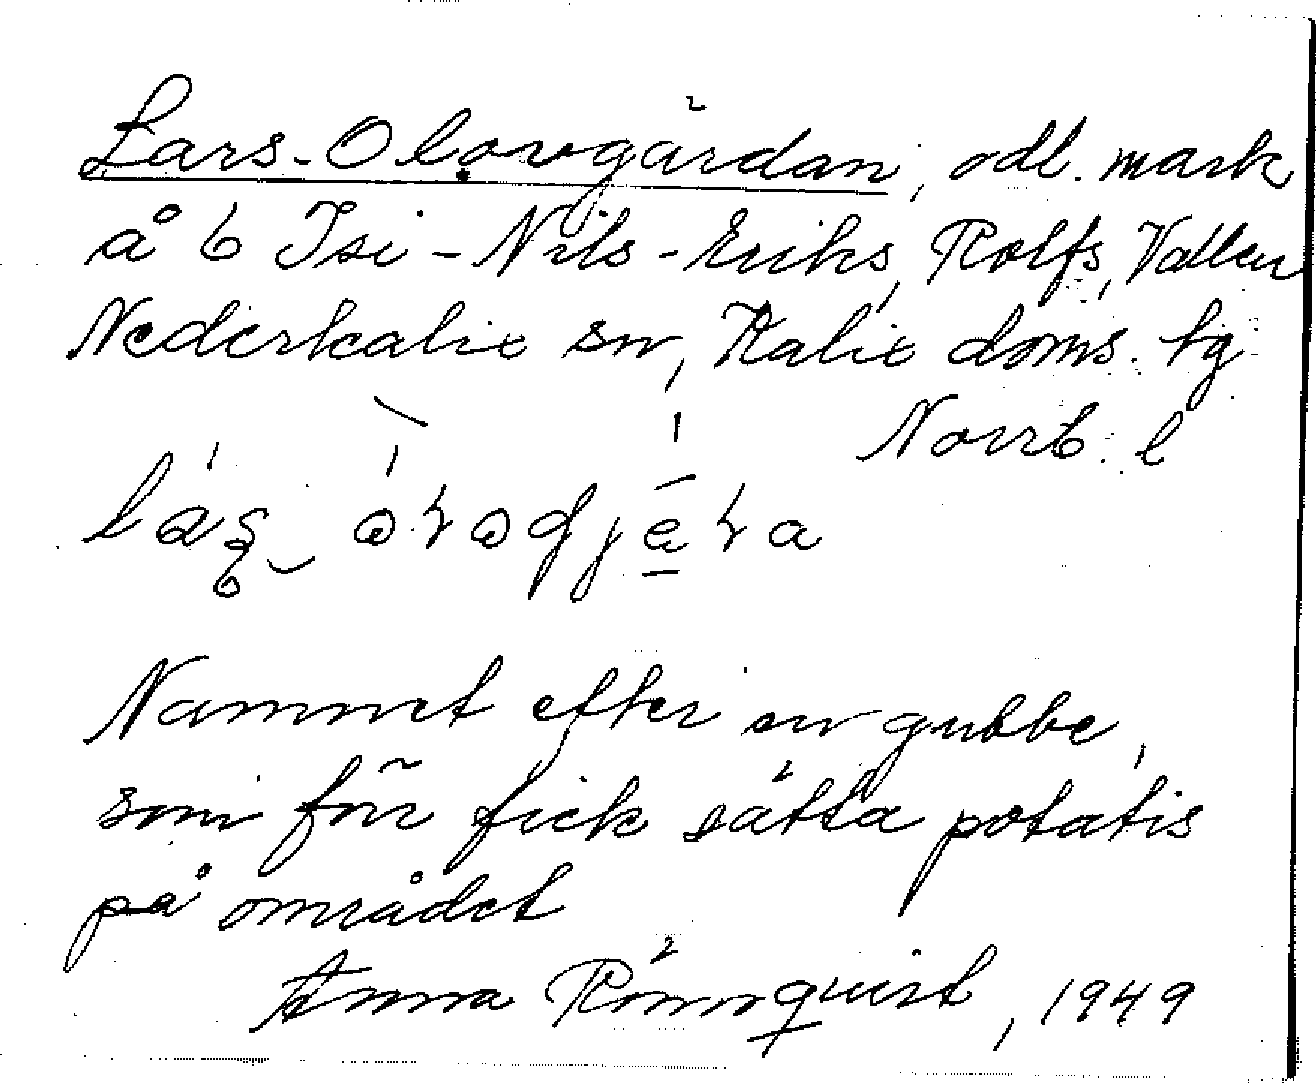 Lars-Olovgärdan, odl. mark
å 6 Isi-Nils-Eriks, Rolfs, Vallen
Nederkalix sn, Kalix doms. tg
Norrb. l
Namnet efter en gubbe,
som förr fick sätta potatis
på området
Anna Rönnquist, 1949